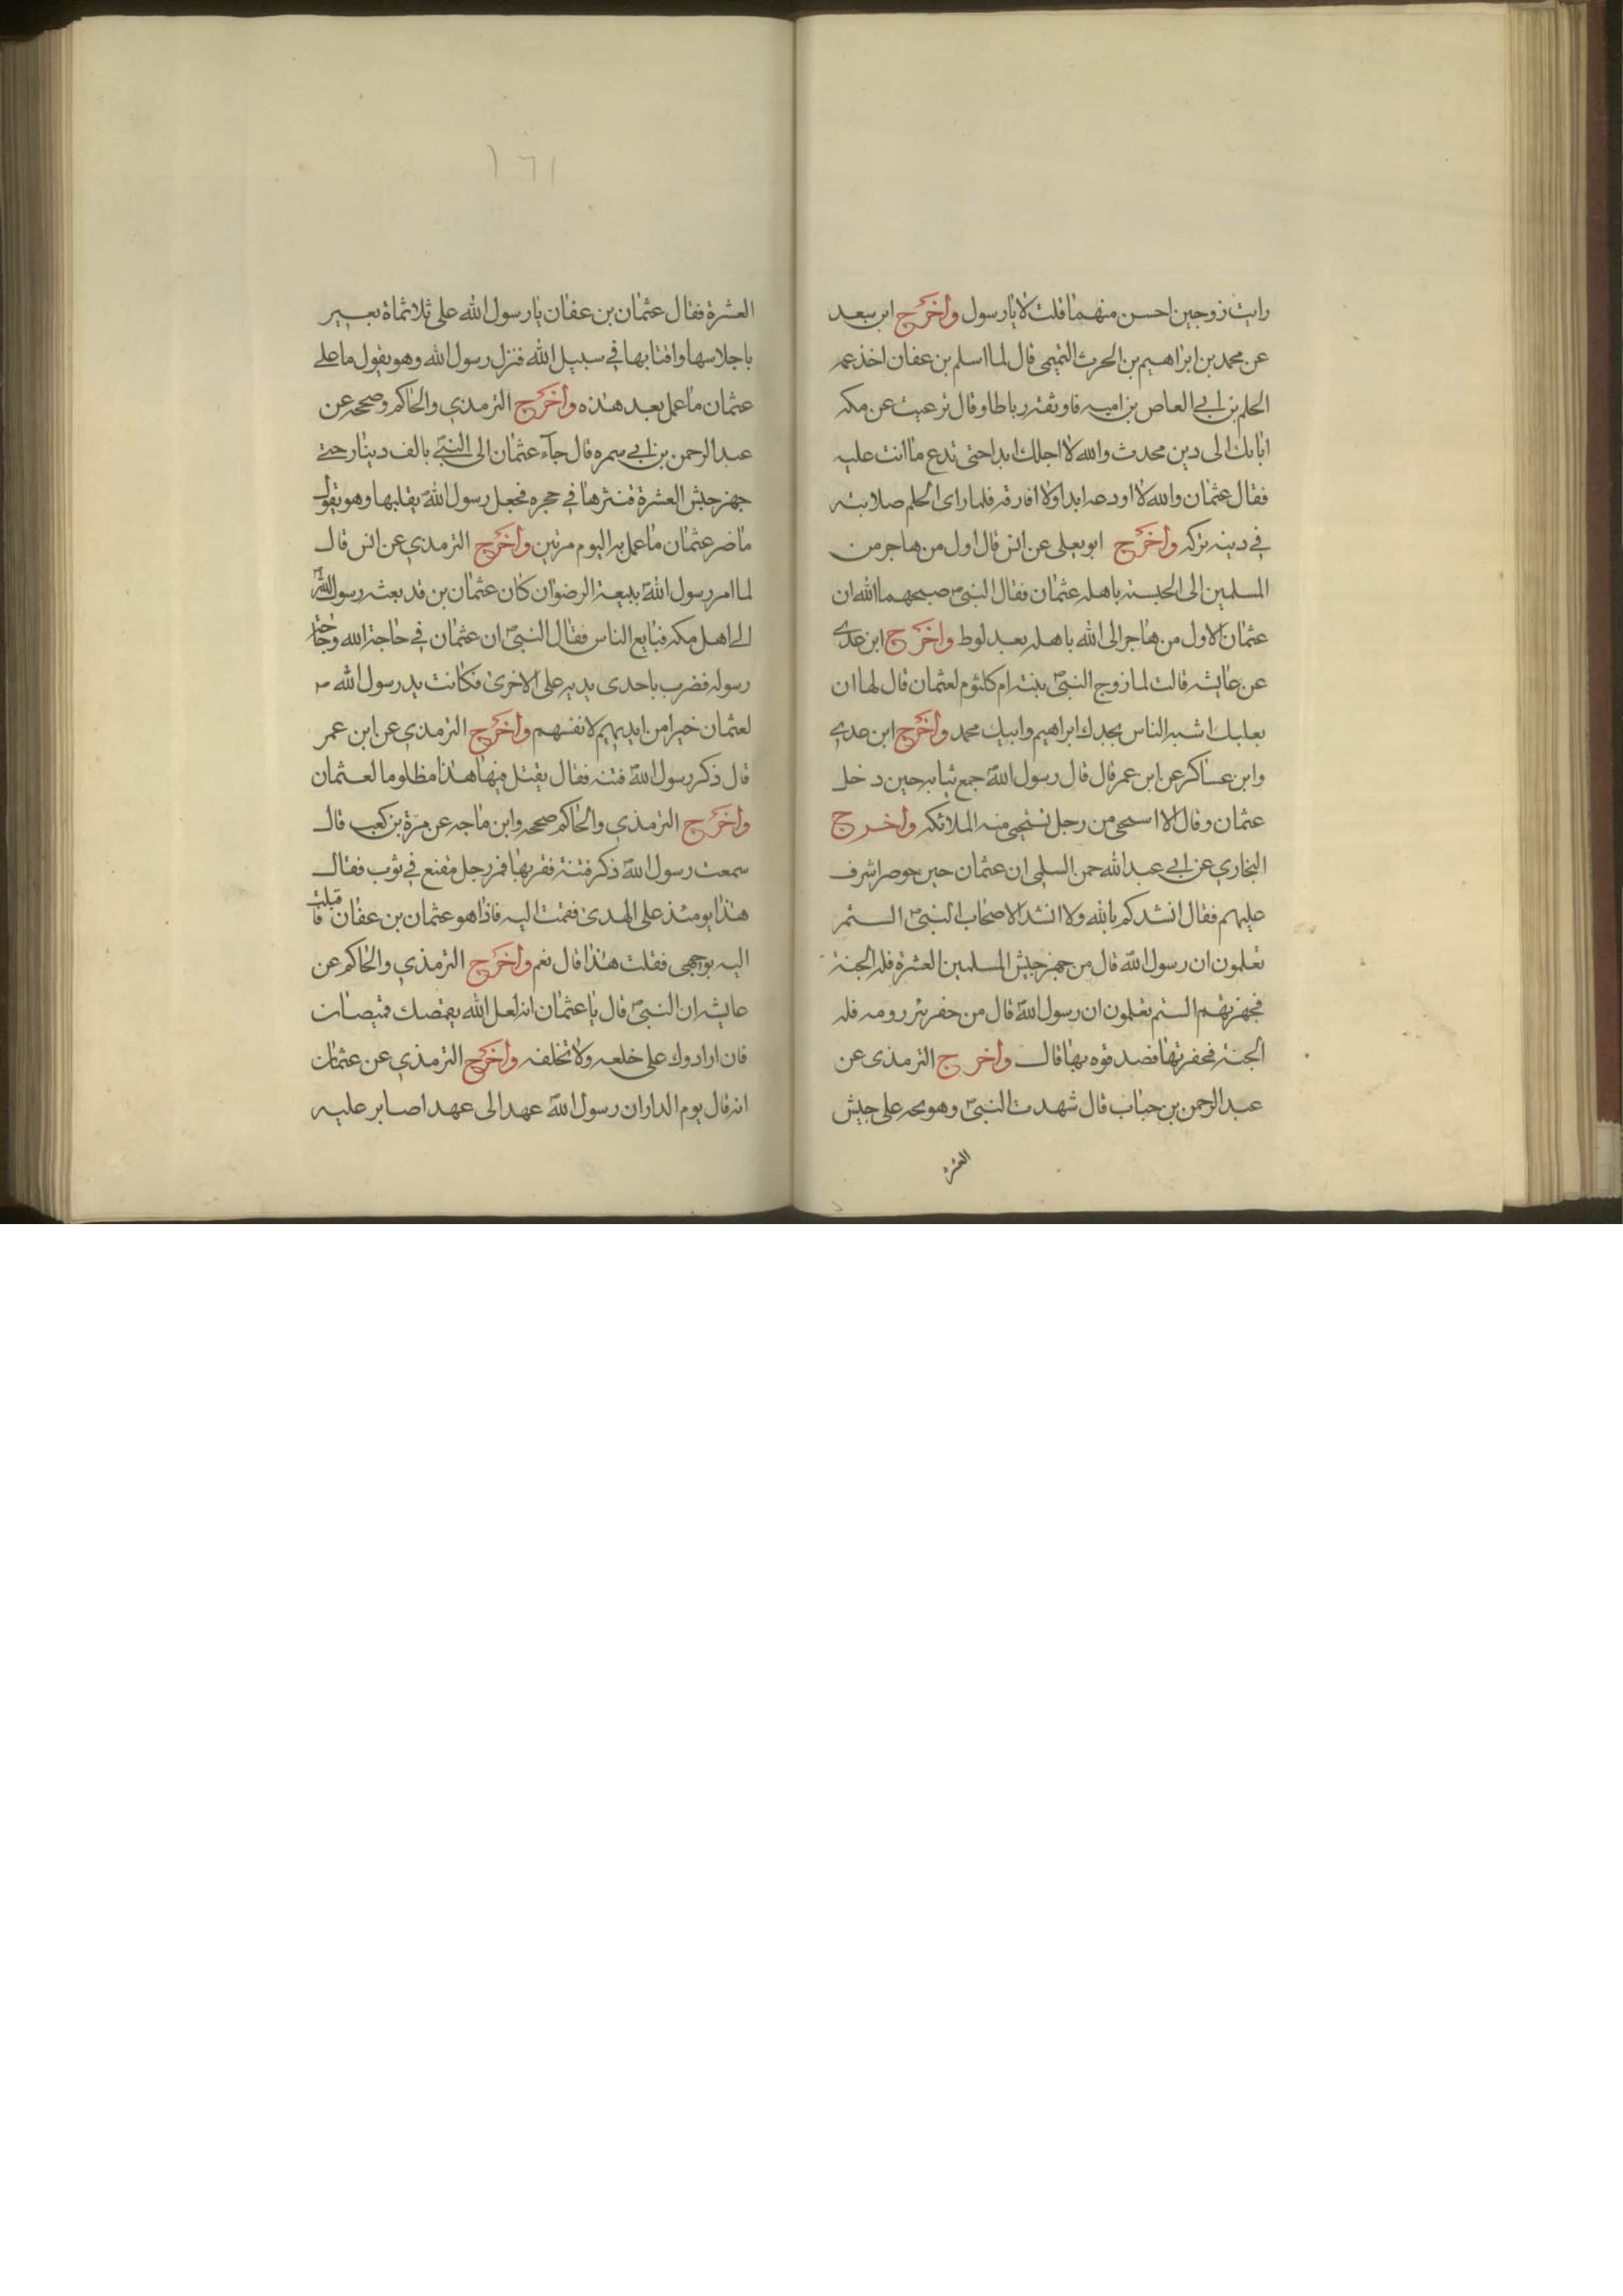 رايت زوجين احسن منهما قلت لا يا رسول واخرج ابن سعد
عن محمد بن ابراهيم بن الحرث التميمى قال لما اسلم بن عفان اخذ عمه
الحلم بن ابي العاص بن اميه فاوثقه رباطا وقال ترعيت عن مكه
اباىك الى دين محدث والله لا احلك ابدا حتى تدع ما انت عليه
فقال عثمان والله لا اودعه ابدا ولا افارقه فلما راى الحلم صلابته
في دينه تركه واخرج ابو يعلى عن انس قال اول من هاجر من
المسلمين الى الحبسته باهله عثمان فقال النبى ص صبحهما الله ان
عثمان لاول من هاجر الى الله باهله بعد لوط واخرج ابن عدي
عن عايشه قالت لما زوج النبى ص بنته ام كلثوم لعثمان قال لها ان
بعلىك اشبه الناس بجدك ابراهيم وابيك محمد واخرج ابن عدي
وابن عساكر عن ابن عمر قال قال رسول الله ص جمع ثيابه حين دخل
عثمان وقال الا اسحى من رجل تستحى منه الملائكه واخرج
البخاري عن ابي عبد الله حمن السلمى ان عثمان حين حوصر اشرف
عليهم فقال انشدكم بالله ولا انشد الا صحاب النبى ص الستم
تعلمون ان رسول الله ص قال من جهز جيش المسلمين العشرة فله الجنة
فجهزتهم الستم تعلمون ان رسول الله ص قال من حفر بئر رومه فله
الجنة فحفرتها فصدقوه بها قال واخرج الترمذى عن
عبد الرحمن بن حباب قال شهدت النبى ص وهو يحه على جيش
العشرة
١٦١
العشرة فقال عثمان بن عفان يا رسول الله على ثلاثماة بعير
باجلاسها واقتابها في سبيل الله فنزل رسول الله وهو يقول ما على
عثمان ما عمل بعد هذه واخرج الترمذي والحاكم وصححه عن
عبد الرحمن بن ابي سمره قال جآء عثمان الى النبي ص بالف دينار حتي
جهز جيش العشرة فنثرها في حجره فجعل رسول الله ص يقلبها وهو يقول
ما ضر عثمان ما عمل به اليوم مرتين واخرج الترمذي عن انس قال
لما امر رسول الله ص ببيعة الرضوان كان عثمان بن قد بعثه رسول الله ص
الي اهل مكه فبايع الناس فقال النبى ص ان عثمان في حاجة الله وحاجة
رسوله فضرب باحدى يديه على الاخرى فكانت يد رسول الله ص
لعثمان خيرا من ايديهم لانفسهم واخرج الترمذي عن ابن عمر
قال ذكر رسول الله ص فتنه فقال يقتل فيها هذا مظلوما لعثمان
واخرج الترمذي والحاكم صححه وابن ماجه عن مرة بن كعب قال
سمعت رسول الله ص ذكر فتنة فقربها فمر رجل مقنع في ثوب فقال
هذا يومئذ على الهدى فقمت اليه فاذا هو عثمان بن عفان فاقبلت
اليه بوجهى فقلت هذا قال نعم واخرج الترمذي والحاكم عن
عايشه ان النبى ص قال يا عثمان انه لعل الله يقمصك قميصان
فان ارادوك على خلعه ولا تخلفه واخرج الترمذي عن عثمان
انه قال يوم الدار ان رسول الله ص عهد الى عهدا صابر عليه